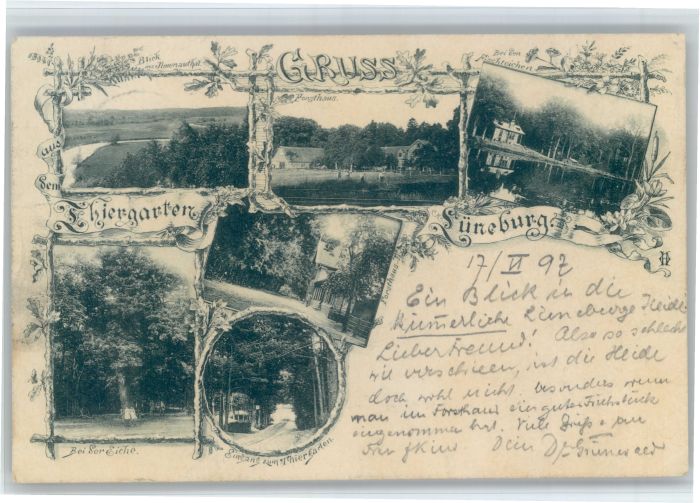 Blick
Gruss
Forsthaus.
Bei den
Fischteichen.
aus
dem
Thiergarten
Lüneburg
Forsthaus
Bei der Eiche.
Eingang zum Thiergarten.
17/VI 97
Ein Blick in die
kümmerliche Lüneburge Heide
Lieber Freund! Also so schlecht
wie verschrieen, ist die Heide
doch wohl nicht. besonders wenn
man im Forsthaus ein gutes Frühstück
eingenommen hat. Viele Grüße an
Frau & Kind Dein Dr. Grünwald